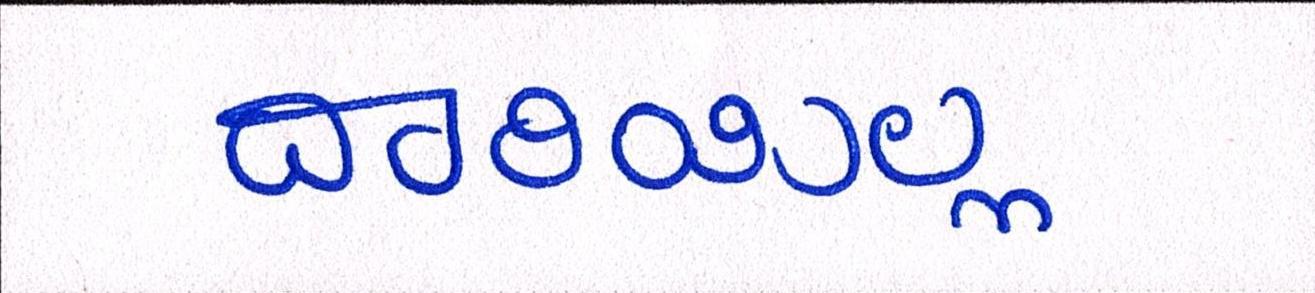 ದಾರಿಯಲ್ಲಿ